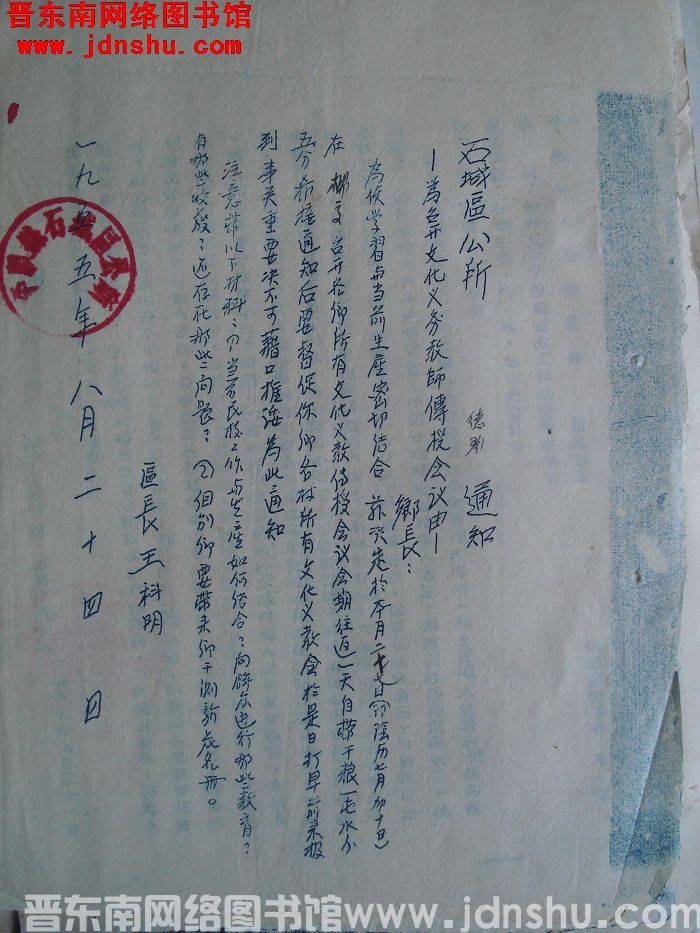 晋东南网络图书馆
www.jdnshu.com
石城區公所 通知
—為召开文化义务教師傳授会议由—
鄉長：
為使学習与当前生產密切结合 茲决定於本月二十七日(即陰历七月初十日)
在 召开各鄉所有文化义教傳授会议会期往返一天自带干粮一屯水分
五分希接通知后要督促你鄉各村所有文化义教会於是日打早前来报
到事关重要决不可藉口推诿為此通知
注意带以下材料：(1)当前民校工作与生產如何结合？向群众進行那些教育？
有那些收获？还存在那些问题？(2)個别鄉要带来鄉干测验成名册。
區長王科明
一九五五年八月二十四日
晋东南网络图书馆www.jdnshu.com